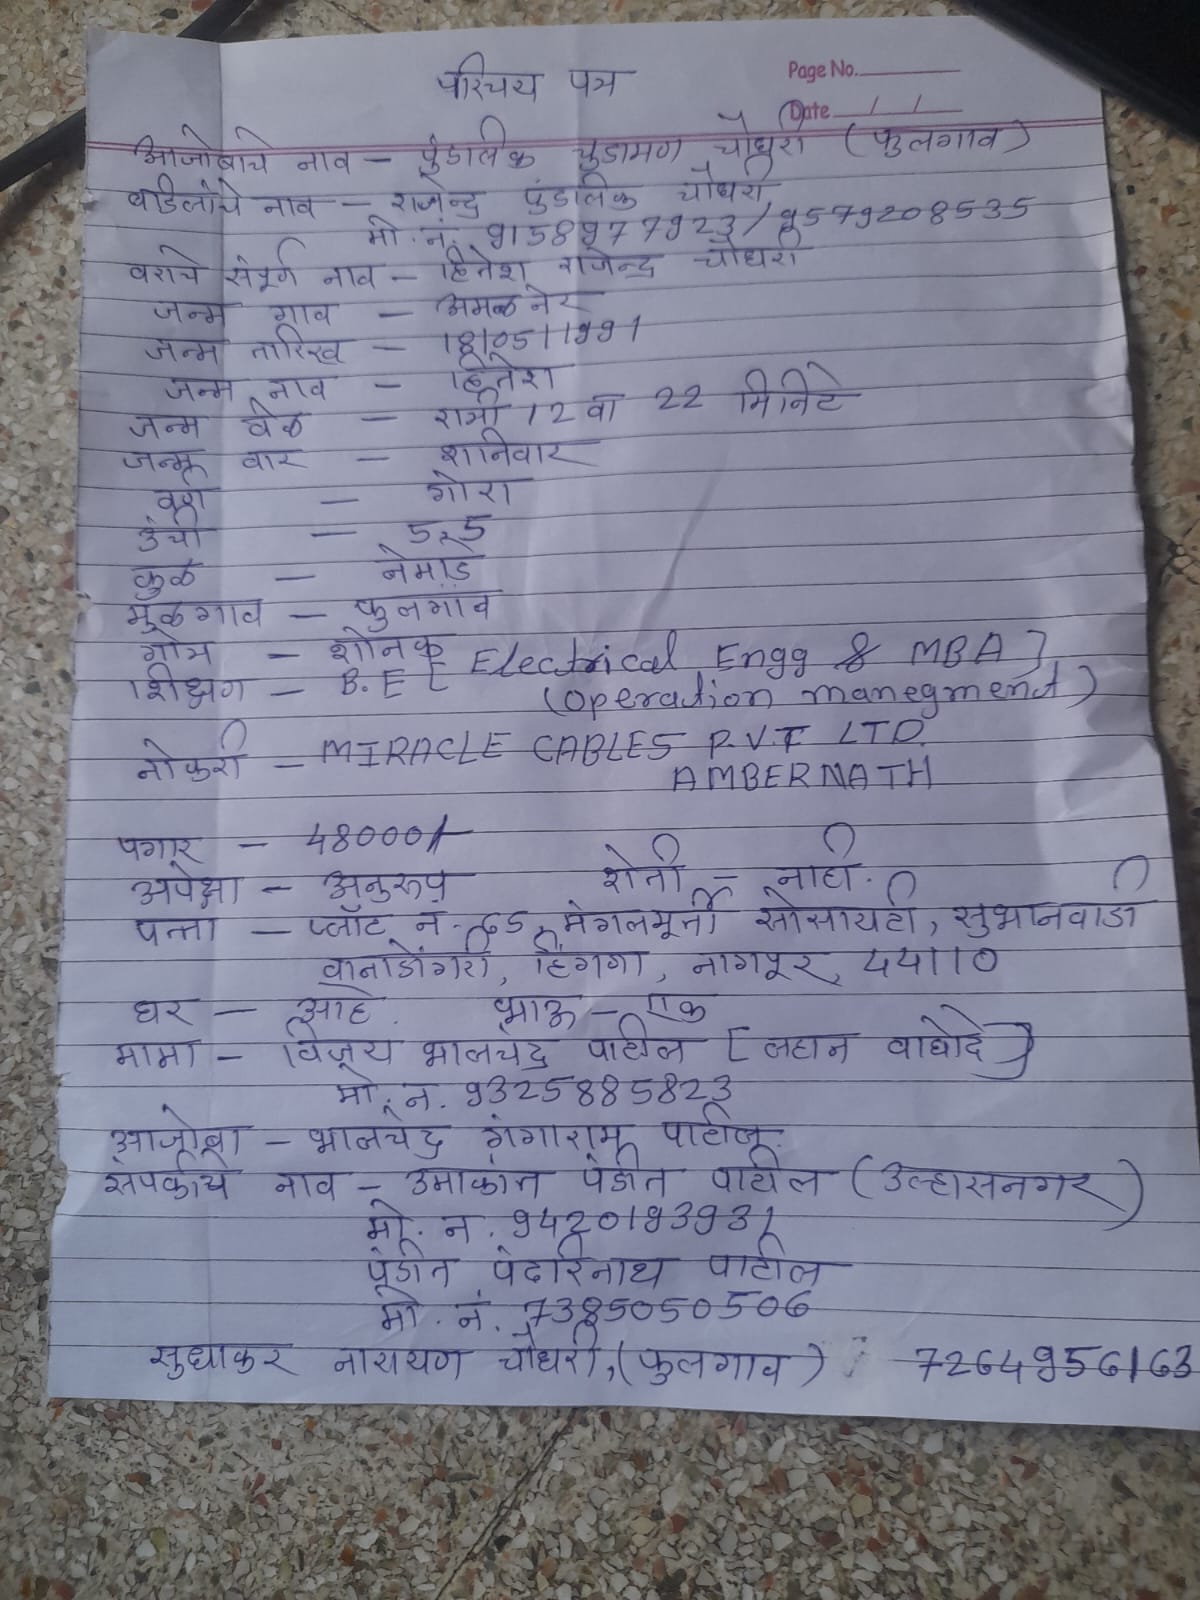 परिचय पत्र
Page No.
Date / /
आजोबाचे नाव - पुंडलिक चुडामण चौधरी (फुलगाव)
वडिलांचे नाव - राजेन्द्र पुंडलिक चौधरी
मो. नं. 9158977923/9579208535
वराचे संपूर्ण नाव - हितेश राजेन्द्र चौधरी
जन्म गाव - अमळनेर
जन्म तारिख - 18/05/1991
जन्म नाव - हितेश
जन्म वेळ - रात्री 12 वा 22 मिनिटे
जन्म वार - शनिवार
वर्ण - गोरा
उंची - 5.5
कुळ - नेमाडे
मुळगाव - फुलगांव
गोत्र - शोनक
शिक्षण - B.E [ Electrical Engg & MBA ]
(operation manegment)
नोकरी - MIRACLE CABLES P.V.T LTD.
AMBERNATH
पगार - 48000/-
अपेक्षा - अनुरूप शेती - नाही.
पत्ता - प्लॉट नं- 65, मंगलमूर्ती सोसायटी, सुभानवाडी
वानाडोंगरी, हिंगणा, नागपूर, 44110
घर - आहे. भाऊ - एक
मामा - विजय भालचंद्र पाटील [लहान वाघोदे]
मो. न. 9325885823
आजोबा - भालचंद्र गंगाराम पाटील.
संपर्काचे नाव - उमाकांत पंडीत पाटील (उल्हासनगर)
मो. न. 9420193931
पंडीत पंढरिनाथ पाटील
मो. नं. 7385050506
सुधाकर नारायण चौधरी, (फुलगाव) 7264956163